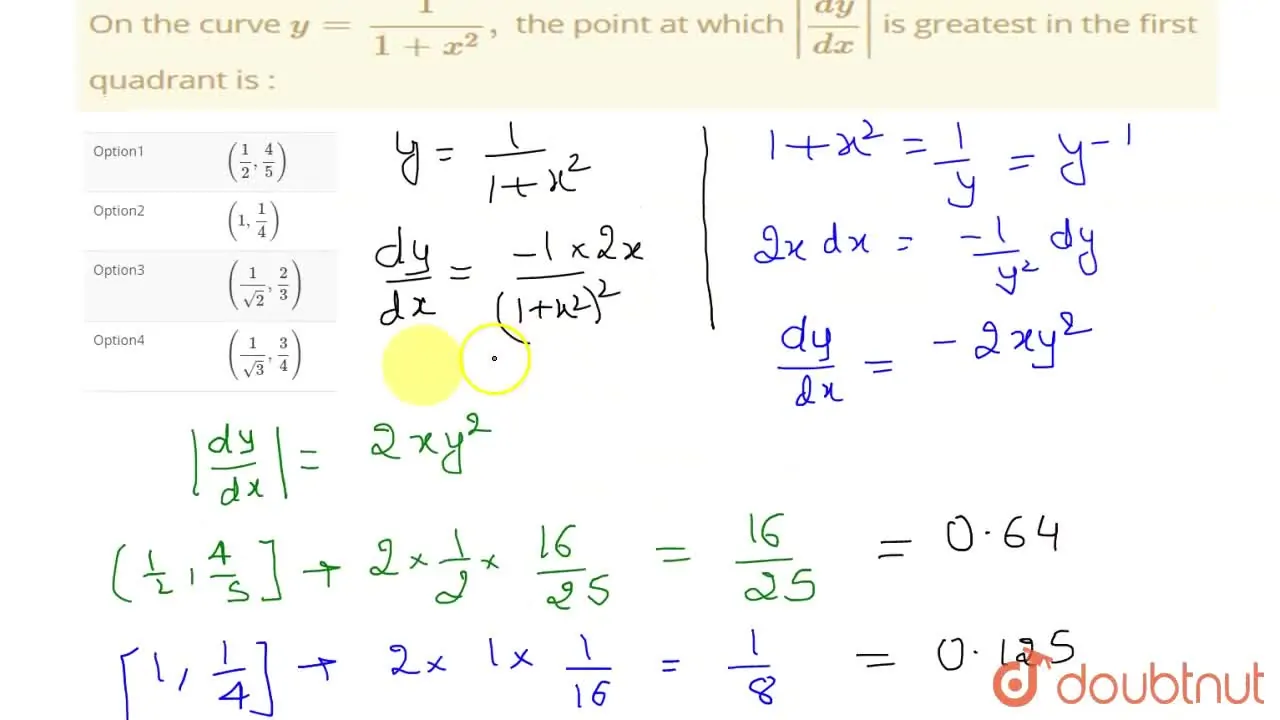 On the curve y = 1/(1 + x²), the point at which |dy/dx| is greatest in the first
quadrant is :
Option1 (1/2, 4/5)
Option2 (1, 1/4)
Option3 (1/√2, 2/3)
Option4 (1/√3, 3/4)
y = 1/(1+x²)
dy/dx = -1 × 2x/(1+x²)²
1+x² = 1/y = y-1
2x dx = -1/y² dy
dy/dx = - 2xy²
|dy/dx| = 2xy²
(1/2, 4/5] → 2 × 1/2 × 16/25 = 16/25 = 0.64
[1, 1/4] → 2 × 1 × 1/16 = 1/8 = 0.125
doubtnut